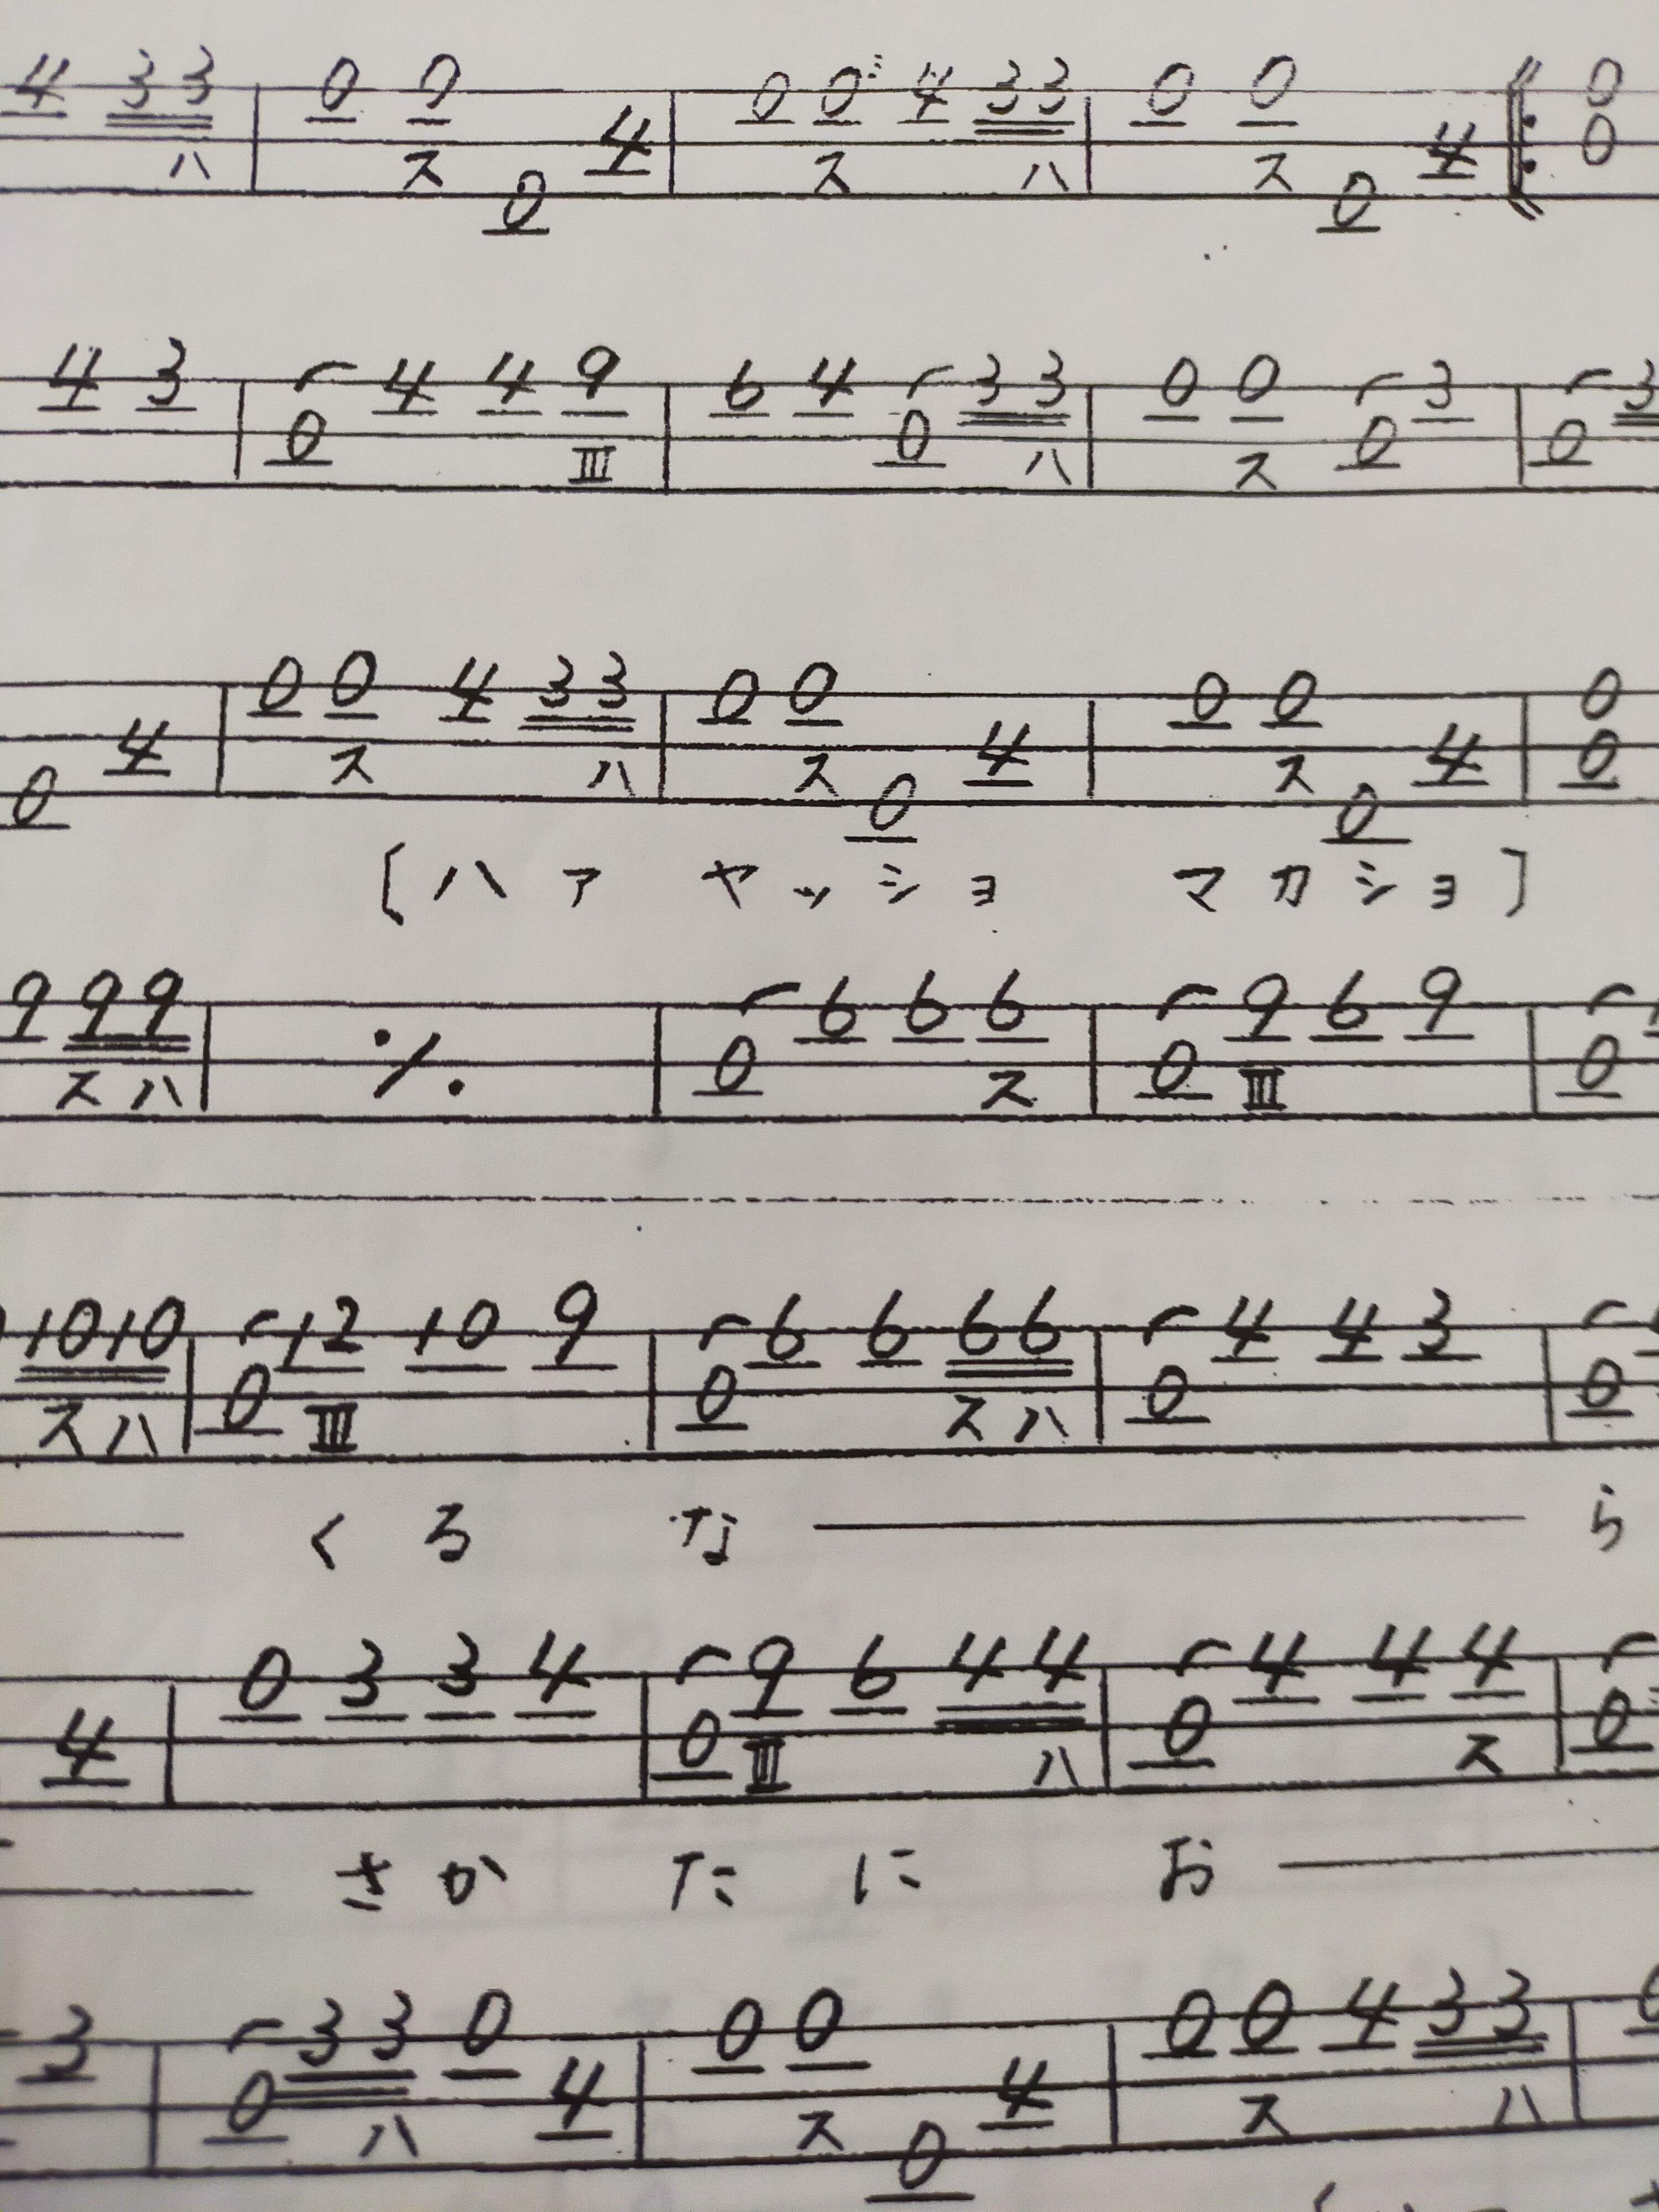 4 33 0 0 0 4 0 0 4 33 0 0 0 4 0
ハ ス ス ハ ス 0
4 3 4 4 9 6 4 33 0 0 3 3
0 Ⅲ 0 ハ ス 0 0
0 4 0 0 4 33 0 0 0 4 0 0 0 4 0
ス ハ ス ス 0
〔ハァ ヤッショ マカショ〕
9 99 ٪ 6 6 6 9 6 9
スハ 0 ス 0 Ⅲ 0
1010 12 10 9 6 6 66 4 4 3
スハ 0 Ⅲ 0 スハ 0 0
くるな ら
4 0 3 3 4 9 6 44 4 4 4
0 Ⅲ ハ 0 ス 0
さかたにお
3 33 0 4 0 0 0 4 0 0 4 33
0 ハ ス ス ハ